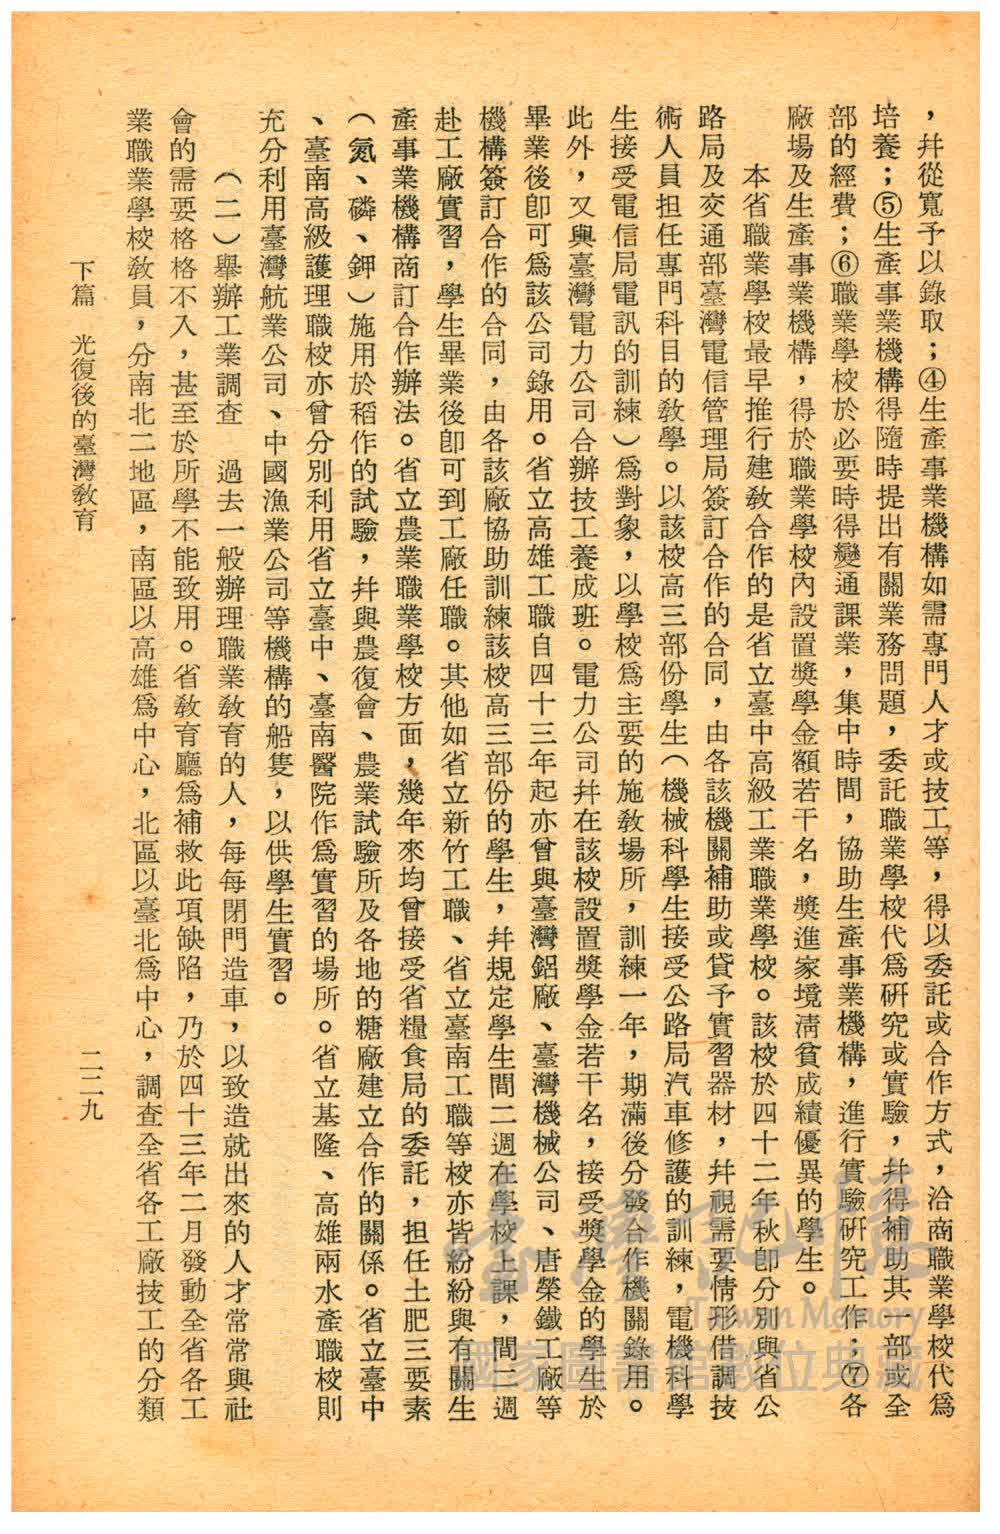 ，幷從寬予以錄取；④生產事業機構如需專門人才或技工等，得以委託或合作方式，洽商職業學校代爲
培養；⑤生產事業機構得隨時提出有關業務問題，委託職業學校代爲研究或實驗，幷得補助其一部或全
部的經費；⑥職業學校於必要時得變通課業，集中時間，協助生產事業機構，進行實驗研究工作；⑦各
廠場及生產事業機構，得於職業學校內設置獎學金額若干名，獎進家境淸貧成績優異的學生。
本省職業學校最早推行建敎合作的是省立臺中高級工業職業學校。該校於四十二年秋卽分別與省公
路局及交通部臺灣電信管理局簽訂合作的合同，由各該機關補助或貸予實習器材，幷視需要情形借調技
術人員担任專門科目的敎學。以該校高三部份學生（機械科學生接受公路局汽車修護的訓練，電機科學
生接受電信局電訊的訓練）爲對象，以學校爲主要的施敎場所，訓練一年，期滿後分發合作機關錄用。
此外，又與臺灣電力公司合辦技工養成班。電力公司幷在該校設置獎學金若干名，接受獎學金的學生於
畢業後卽可爲該公司錄用。省立高雄工職自四十三年起亦曾與臺灣鋁廠、臺灣機械公司、唐榮鐵工廠等
機構簽訂合作的合同，由各該廠協助訓練該校高三部份的學生，幷規定學生間二週在學校上課，間二週
赴工廠實習，學生畢業後卽可到工廠任職。其他如省立新竹工職、省立臺南工職等校亦皆紛紛與有關生
產事業機構商訂合作辦法。省立農業職業學校方面，幾年來均曾接受省糧食局的委託，担任土肥三要素
（氮、磷、鉀）施用於稻作的試驗，幷與農復會、農業試驗所及各地的糖廠建立合作的關係。省立臺中
、臺南高級護理職校亦曾分別利用省立臺中、臺南醫院作爲實習的場所。省立基隆、高雄兩水產職校則
充分利用臺灣航業公司、中國漁業公司等機構的船隻，以供學生實習。
（二）舉辦工業調查　過去一般辦理職業敎育的人，每每閉門造車，以致造就出來的人才常常與社
會的需要格格不入，甚至於所學不能致用。省敎育廳爲補救此項缺陷，乃於四十三年二月發動全省各工
業職業學校敎員，分南北二地區，南區以高雄爲中心，北區以臺北爲中心，調查全省各工廠技工的分類
下篇　光復後的臺灣敎育
二二九
臺灣記憶
Taiwan Memory
國家圖書館數位典藏